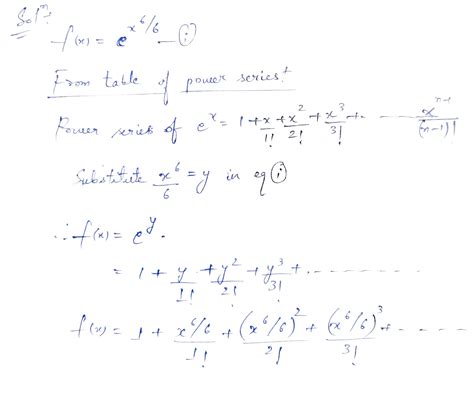 Solⁿ:
f(x) = e^{x^6/6} — (i)
From table of power series:
Power series of e^x = 1 + x/1! + x^2/2! + x^3/3! + - - - - x^{n-1}/(n-1)!
Substitute x^6/6 = y in eq (i)
∴ f(x) = e^y.
= 1 + y/1! + y^2/2! + y^3/3! + - - - - - - - -
f(x) = 1 + x^6/6/1! + (x^6/6)^2/2! + (x^6/6)^3/3! + - - - - -